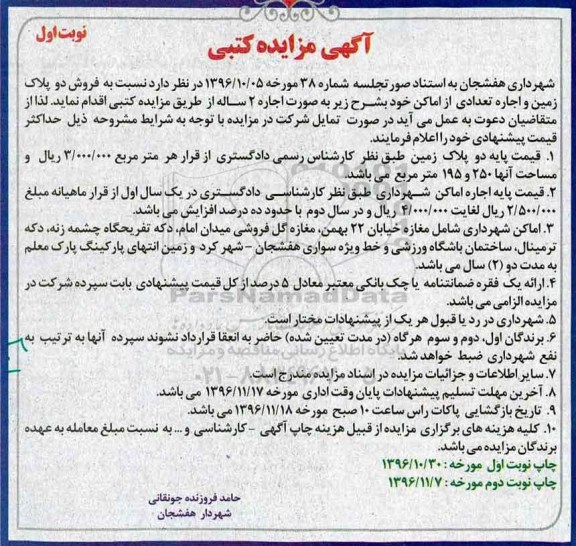 نوبت اول
آگهی مزایده کتبی
شهرداری هفشجان به استناد صورتجلسه شماره ۳۸ مورخه ۱۳۹۶/۱۰/۰۵ در نظر دارد نسبت به فروش دو پلاک
زمین و اجاره تعدادی از اماکن خود بشرح زیر به صورت اجاره ۲ ساله از طریق مزایده کتبی اقدام نماید. لذا از
متقاضیان دعوت به عمل می آید در صورت تمایل شرکت در مزایده با توجه به شرایط مشروحه ذیل حداکثر
قیمت پیشنهادی خود را اعلام فرمایند.
۱. قیمت پایه دو پلاک زمین طبق نظر کارشناس رسمی دادگستری از قرار هر متر مربع ۳/۰۰۰/۰۰۰ ریال و
مساحت آنها ۲۵۰ و ۱۹۵ متر مربع می باشد.
۲. قیمت پایه اجاره اماکن شهرداری طبق نظر کارشناسی دادگستری در یک سال اول از قرار ماهیانه مبلغ
۲/۵۰۰/۰۰۰ ریال لغایت ۴/۰۰۰/۰۰۰ ریال و در سال دوم با حدود ده درصد افزایش می باشد.
۳. اماکن شهرداری شامل مغازه خیابان ۲۲ بهمن، مغازه گل فروشی میدان امام، دکه تفریحگاه چشمه زنه، دکه
ترمینال، ساختمان باشگاه ورزشی و خط ویژه سواری هفشجان - شهر کرد و زمین انتهای پارکینگ پارک معلم
به مدت دو (۲) سال می باشد.
۴. ارائه یک فقره ضمانتنامه یا چک بانکی معتبر معادل ۵ درصد از کل قیمت پیشنهادی بابت سپرده شرکت در
مزایده الزامی می باشد.
۵. شهرداری در رد یا قبول هر یک از پیشنهادات مختار است.
۶. برندگان اول، دوم و سوم هرگاه (در مدت تعیین شده) حاضر به انعقا قرارداد نشوند سپرده آنها به ترتیب به
نفع شهرداری ضبط خواهد شد.
۷. سایر اطلاعات و جزئیات مزایده در اسناد مزایده مندرج است.
۸. آخرین مهلت تسلیم پیشنهادات پایان وقت اداری مورخه ۱۳۹۶/۱۱/۱۷ می باشد.
۹. تاریخ بازگشایی پاکات راس ساعت ۱۰ صبح مورخه ۱۳۹۶/۱۱/۱۸ می باشد.
۱۰. کلیه هزینه های برگزاری مزایده از قبیل هزینه چاپ آگهی - کارشناسی و ... به نسبت مبلغ معامله به عهده
برندگان مزایده می باشد.
چاپ نوبت اول مورخه : ۱۳۹۶/۱۰/۳۰
چاپ نوبت دوم مورخه : ۱۳۹۶/۱۱/۷
حامد فروزنده جونقانی
شهردار هفشجان
ParsNamadData